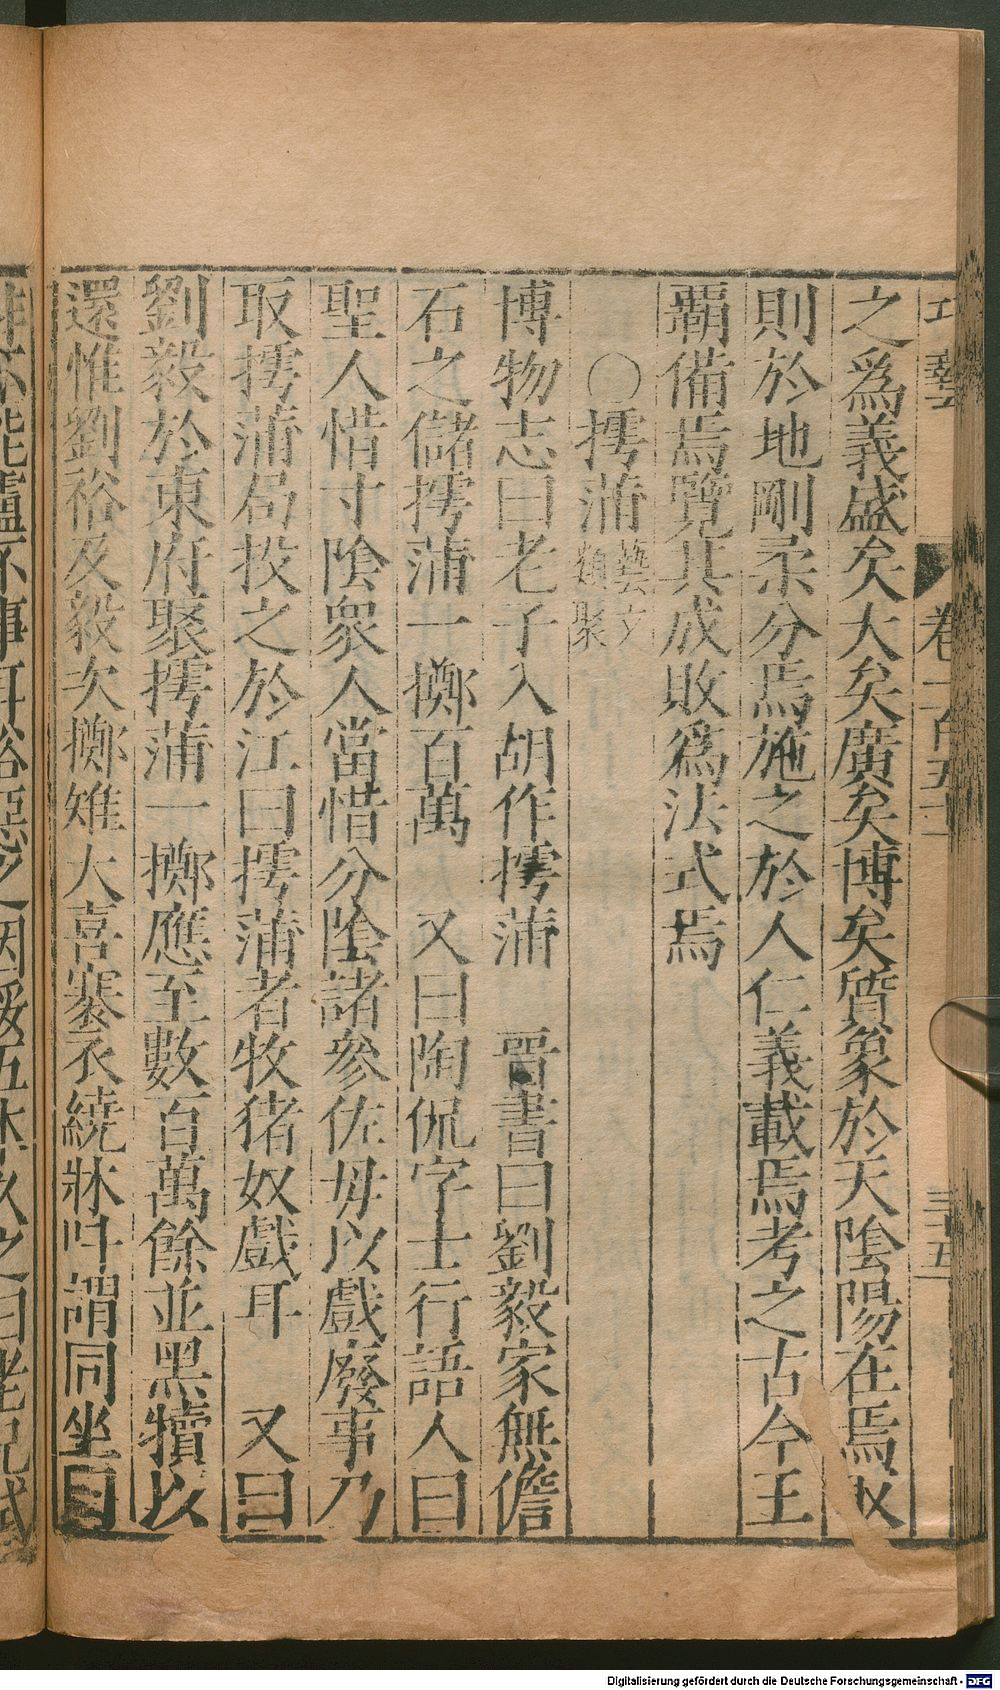 巧藝 卷一百五十 三十五
之爲義盛矣大矣廣矣博矣質象於天陰陽在焉取
則於地剛柔分焉施之於人仁義載焉考之古今王
覇備焉覽其成敗爲法式焉
○摴蒲藝文類聚
博物志曰老子入胡作摴蒲 晉書曰劉毅家無儋
石之儲摴蒲一擲百萬 又曰陶侃字士行語人曰
聖人惜寸陰衆人當惜分陰諸參佐毋以戲廢事乃
取摴蒲局投之於江曰摴蒲者牧猪奴戲耳 又曰
劉毅於東府聚摴蒲一擲應至數百萬餘並黑犢以
還惟劉裕及毅次擲雉大喜褰衣繞牀叫謂同坐曰
不能盧不事耳裕惡之因挼五木久之曰老兄試
Digitalisierung gefördert durch die Deutsche Forschungsgemeinschaft - DFG